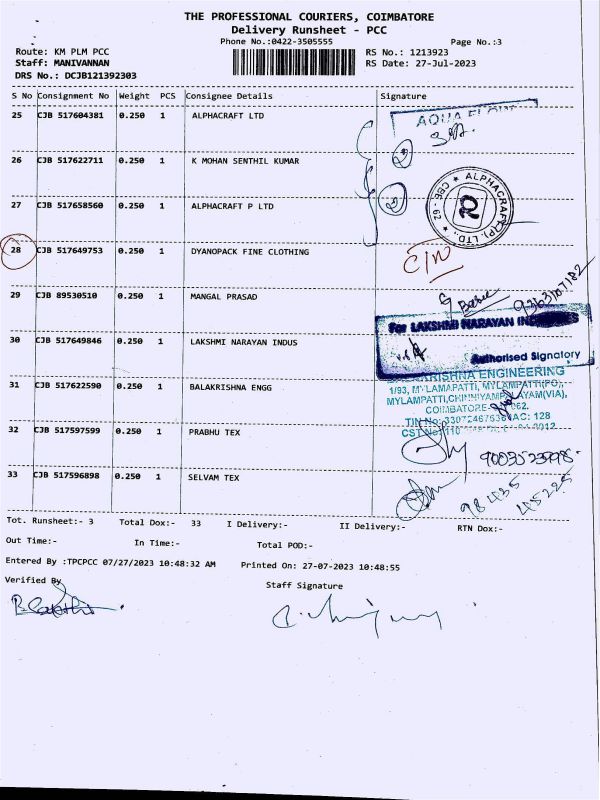 THE PROFESSIONAL COURIERS, COIMBATORE
Delivery Runsheet - PCC
Phone No.:0422-3505555 Page No.:3
Route: KM PLM PCC RS No.: 1213923
Staff: MANIVANNAN RS Date: 27-Jul-2023
DRS No.: DCJB121392303
S No Consignment No Weight PCS Consignee Details Signature
25 CJB 517604381 0.250 1 ALPHACRAFT LTD
AQUA
26 CJB 517622711 0.250 1 K MOHAN SENTHIL KUMAR
27 CJB 517658560 0.250 1 ALPHACRAFT P LTD
ALPHACRAFT (P). LTD. ★ CBE - 62 ★
28 CJB 517649753 0.250 1 DYANOPACK FINE CLOTHING
29 CJB 89530510 0.250 1 MANGAL PRASAD
30 CJB 517649846 0.250 1 LAKSHMI NARAYAN INDUS
For LAKSHMI NARAYAN
Authorised Signatory
31 CJB 517622590 0.250 1 BALAKRISHNA ENGG
ENGINEERING
1/93, MYLAMAPATTI, MYLAMPATTI(PO),
COIMBATORE
32 CJB 517597599 0.250 1 PRABHU TEX
33 CJB 517596898 0.250 1 SELVAM TEX
98 435
45225
Tot. Runsheet:- 3 Total Dox:- 33 I Delivery:- II Delivery:- RTN Dox:-
Out Time:- In Time:- Total POD:-
Entered By :TPCPCC 07/27/2023 10:48:32 AM Printed On: 27-07-2023 10:48:55
Verified By Staff Signature